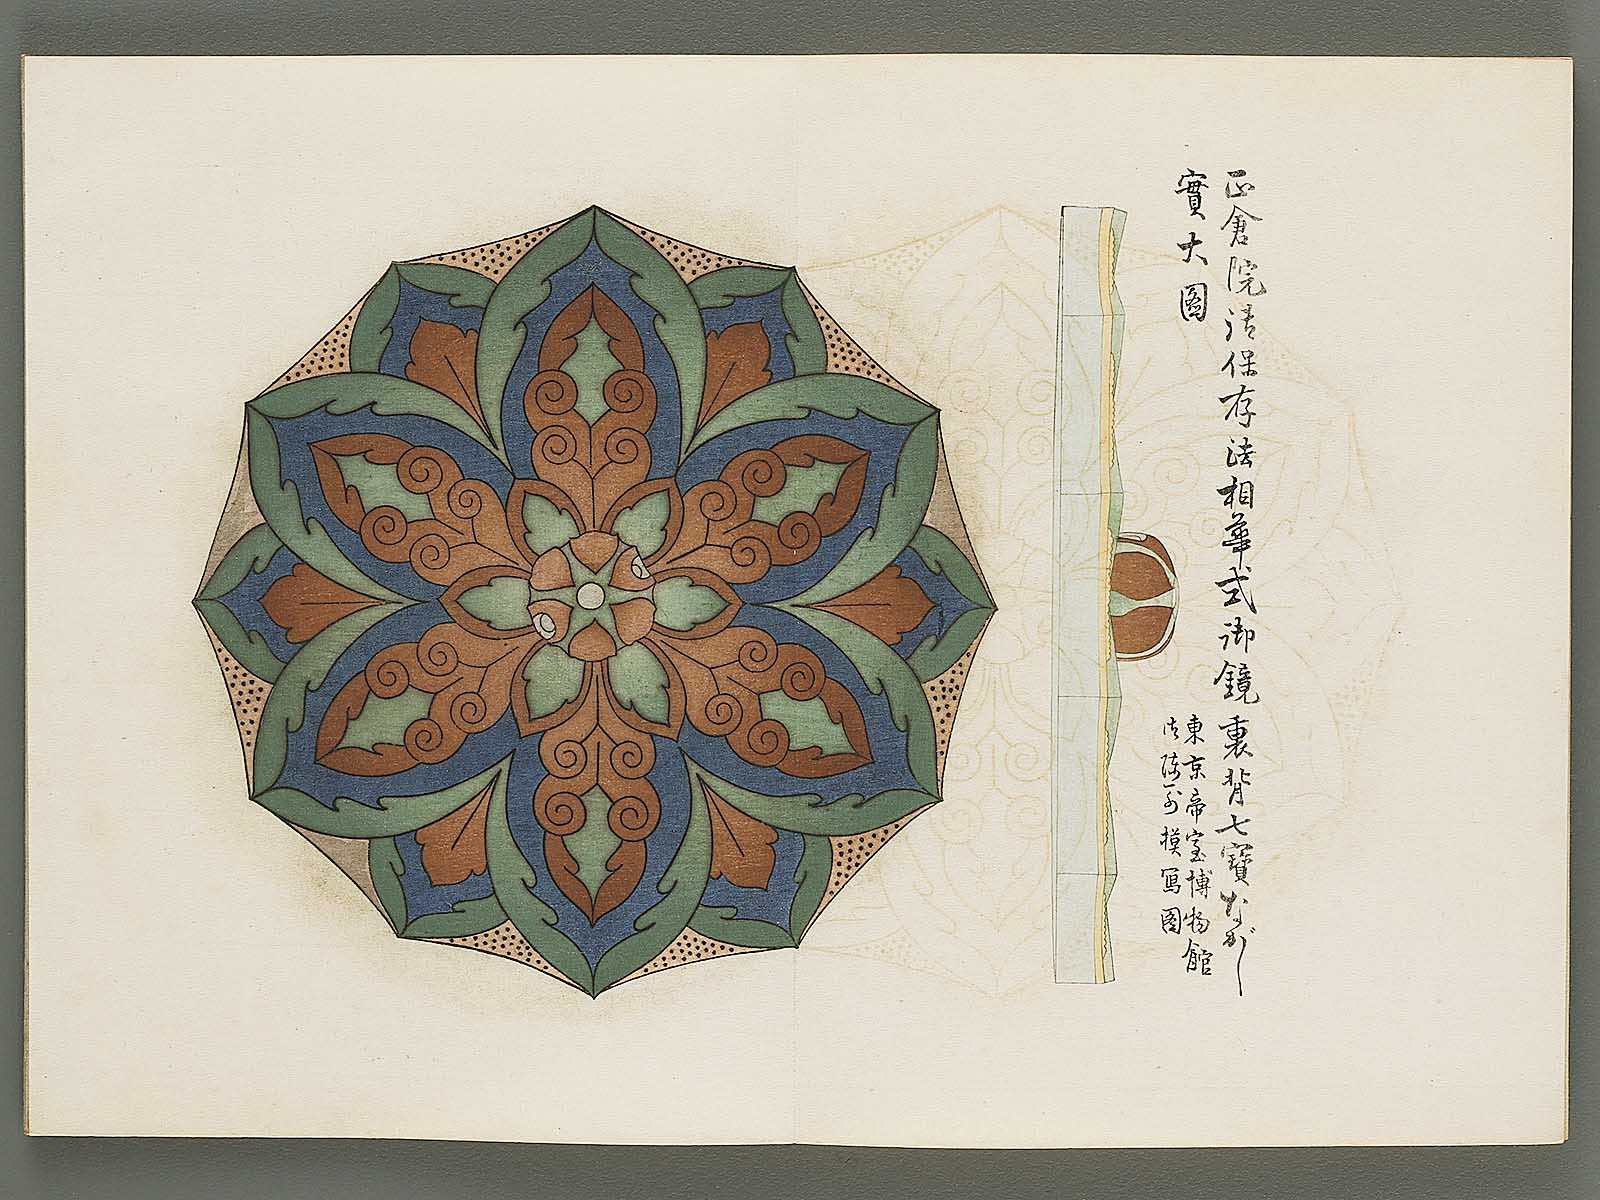 正倉院御保存法相華式御鏡裏背七寳ながし
實大圖
東京帝室博物館
御陳列模写圖